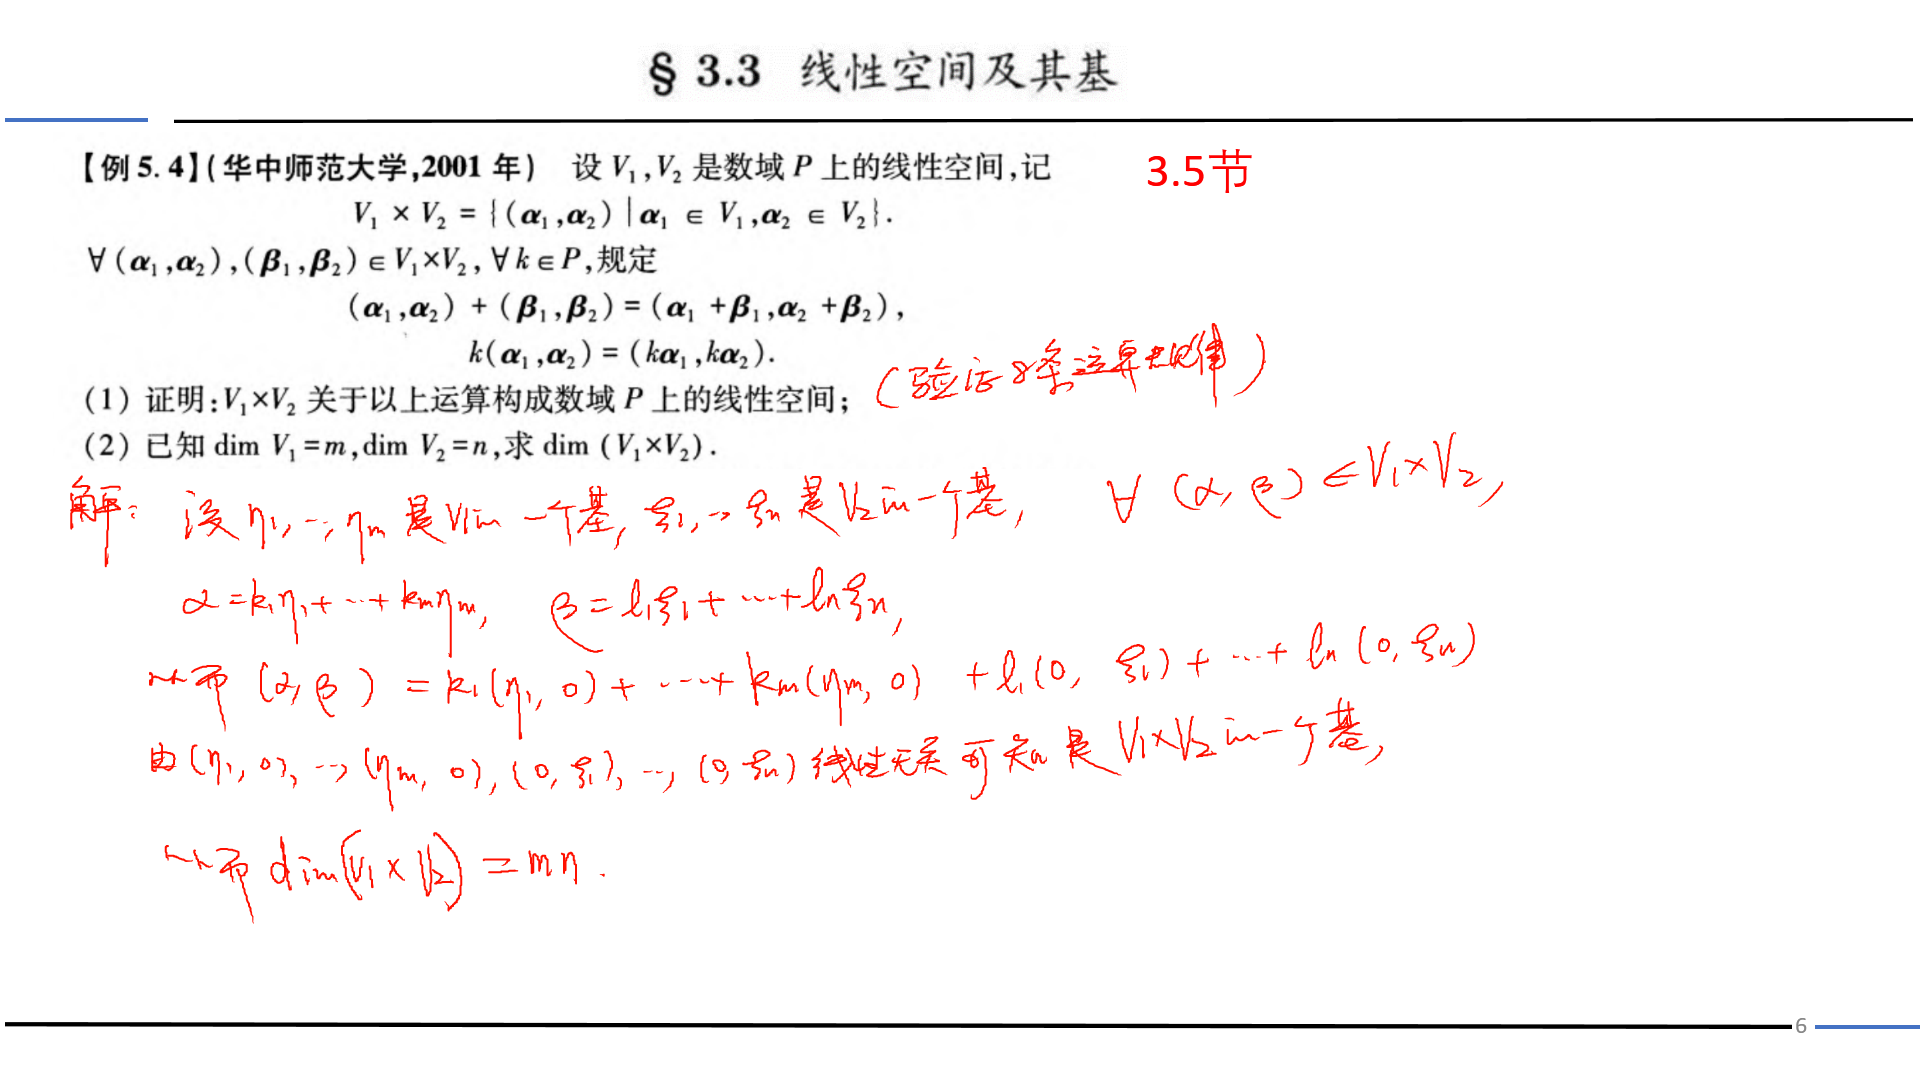 § 3.3 线性空间及其基
【例 5.4】(华中师范大学,2001 年) 设 V₁,V₂ 是数域 P 上的线性空间,记
3.5节
V₁ × V₂ = {(α₁,α₂)|α₁ ∈ V₁,α₂ ∈ V₂}.
∀(α₁,α₂),(β₁,β₂)∈V₁×V₂,∀k∈P,规定
(α₁,α₂) + (β₁,β₂) = (α₁ +β₁,α₂ +β₂),
k(α₁,α₂) = (kα₁,kα₂).
(1) 证明:V₁×V₂ 关于以上运算构成数域 P 上的线性空间;
(验证8条运算规律)
(2) 已知 dim V₁=m,dim V₂=n,求 dim (V₁×V₂).
解: 设 η₁, …, ηm 是 V₁ 的一个基, ξ₁, …, ξn 是 V₂ 的一个基, ∀ (α, β) ∈ V₁×V₂,
α = k₁η₁ + ⋯ + kmηm, β = l₁ξ₁ + ⋯ + lnξn,
从而 (α, β) = k₁(η₁, 0) + ⋯ + km(ηm, 0) + l₁(0, ξ₁) + ⋯ + ln(0, ξn)
由 (η₁, 0), …, (ηm, 0), (0, ξ₁), …, (0, ξn) 线性无关可知是 V₁×V₂ 的一个基,
从而 dim(V₁×V₂) = mn.
6